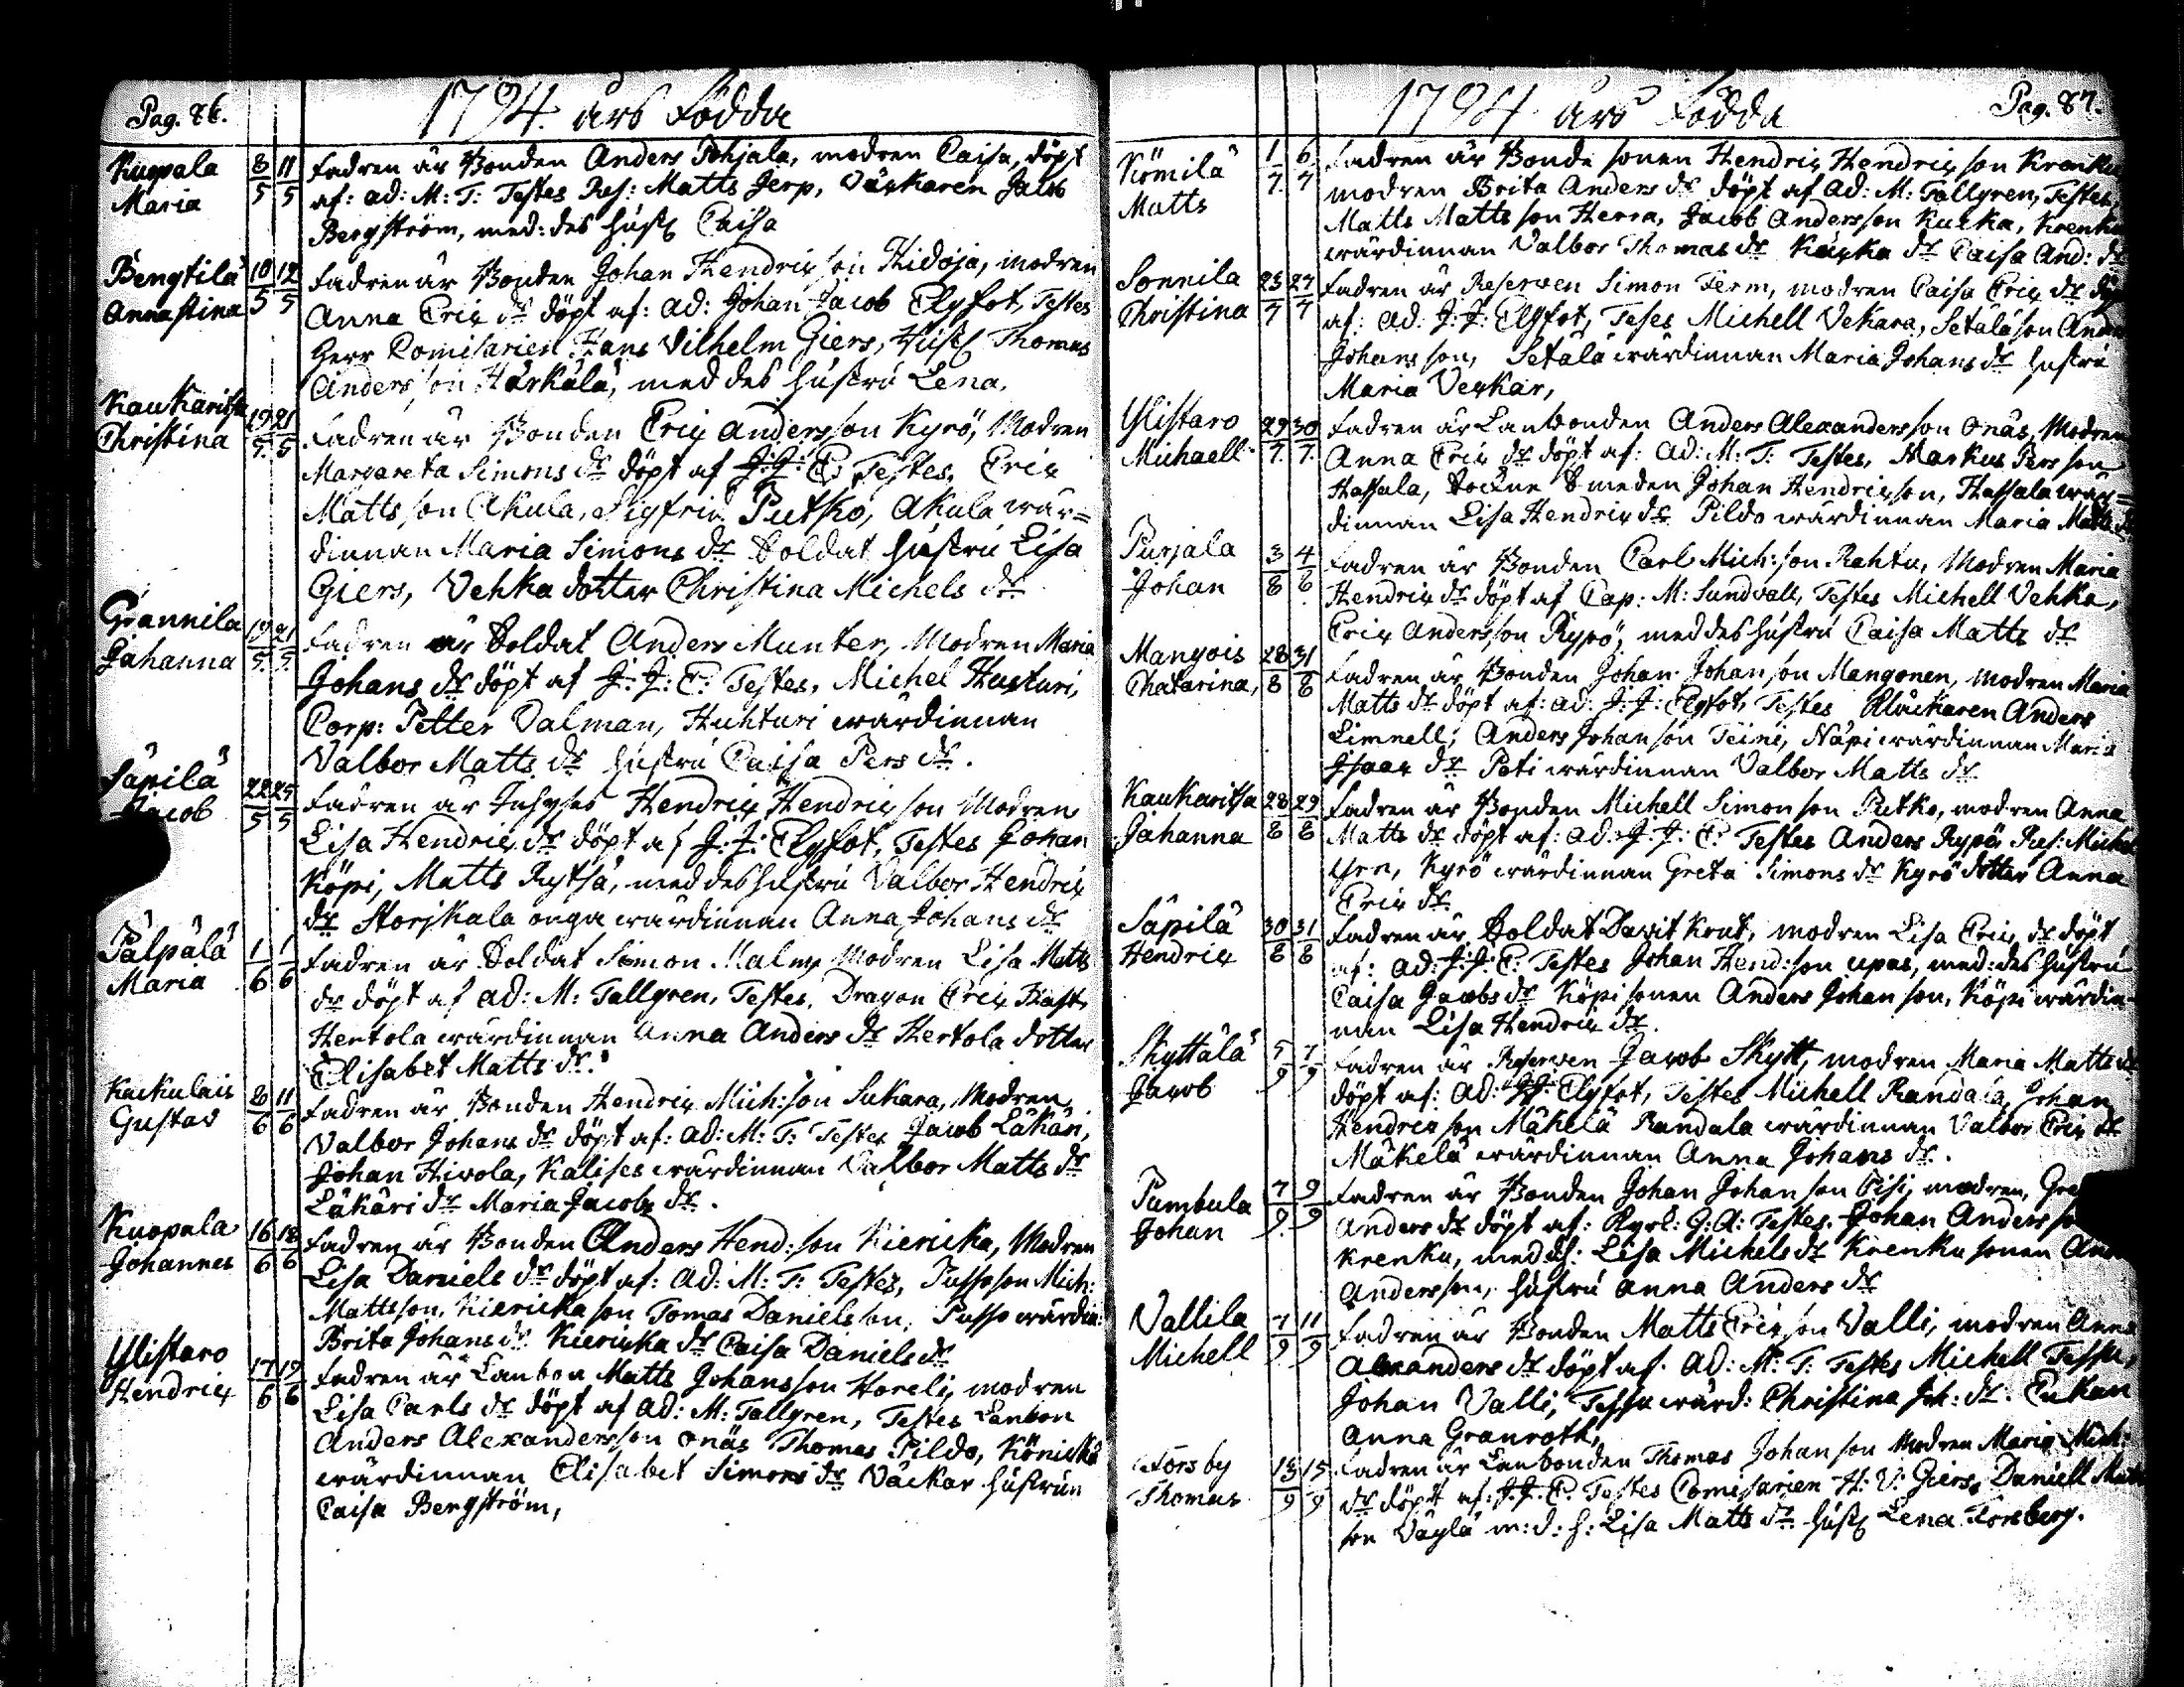 Pag. 86.
1794. års Födda
Kuopala 8/5 11/5 Fadren är Bonden Anders Pohjala, modren Caisa, döpt
Maria af: ad: M: T: Testes Res: Matts Jerp, Väskaren Jacob
Bergström, med: des hust Caisa
Bengtilä 10/5 12/5 Fadren är Bonden Johan Hendrix son Hidoja, modren
Annastina Anna Erix dr döpt af: ad: Johan Jacob Elgfot, Testes
Herr Comisarien Hans Vilhelm Giers, Thomas
Anders son Härkälä, med des hustru Lena.
Kaukaritsa 19/5 21/5 Fadren är Bonden Erix Andersson Kyrö, Modren
Christina Margareta Simons dr döpt af J: J: E: Testes, Erix
Matts son Akula, Sigfrid Putko, Akula wär=
dinnan Maria Simons dr Soldat hustru Lisa
Giers, Vehka dotter Christina Michels dr
Grannila 19/5 21/5 Fadren är Soldat Anders Munter, Modren Maria
Johanna Johans dr döpt af J: J: E: Testes, Michel Huhturi,
Corp: Petter Valman, Huhturi wärdinnan
Valbor Matts dr hustru Caisa Pers dr.
Säpilä 22/5 25/5 Fadren är Inhyses Hendrix Hendrix son Modren
Jacob Lisa Hendrix dr döpt af J: J: Elgfot, Testes Johan
Köpi, Matts Rytsä, med des hustru Valbor Hendrix
dr Storskala onga wärdinnan Anna Johans dr
Pälpälä 1/6 1/6 Fadren är Soldat Simon Malm, Modren Lisa Matts
Maria dr döpt af ad: M: Tallgren, Testes, Dragon Erix Kast
Hertola wärdinnan Anna Anders dr Hertola dotter
Elisabet Matts dr.
Kuckulais 8/6 11/6 Fadren är Bonden Hendrix Mich: son Sukara, Modren
Gustav Valbor Johans dr döpt af: ad: M: T: Testes Jacob Läkäri,
Johan Hivola, Kalises wärdinnan Valbor Matts dr
Läkäri dr Maria Jacobs dr.
Kuopala 16/6 18/6 Fadren är Bonden Anders Hend: son Kiericka, Modren
Johannes Lisa Daniels dr döpt af: ad: M: T: Testes, Passo son Mich:
Mattsson, Kiericka son Tomas Daniels son, Passo wärdin:
Brita Johans dr Kiericka dr Caisa Daniels dr
Ylistaro 17/6 19/6 Fadren är Lanbon Matts Johansson Horelix, modren
Hendrix Lisa Carls dr döpt af ad: M: Tallgren, Testes Lanbon
Anders Alexandersson Onäs Thomas Pildo, Könickä
wärdinnan Elisabet Simons dr Väckar hustrun
Caisa Bergström,
1794 års Födda
Pag. 87.
Kömilä 1/7 6/7 Fadren är Bonde sonen Hendrix Hendrix son Krenku
Matts modren Brita Anders dr döpt af ad: M: Tallgren, Testes,
Matts Matts son Herra, Jacob Andersson Kuska, Krenku
wärdinnan Valbor Thomas dr Kuska dr Caisa And: dr
Sonnila 23/7 27/7 Fadren är Reserven Simon Ferm, modren Caisa Erix dr döpt
Christina af: ad: J: J: Elgfot, Teses Michell Vekara, Setälä son Anders
Johans son, Setälä wärdinnan Maria Johans dr hustru
Maria Veskar,
Ylistaro 29/7 30/7 Fadren är Lanbonden Anders Alexandersson Onäs, Modren
Michaell Anna Erix dr döpt af: ad: M: T: Testes, Markus Pers son
Hassala, Sockne Smeden Johan Hendrix son, Hassala wär=
dinnan Lisa Hendrix dr Pildo wärdinnan Maria Matts dr
Purjala 3/8 4/8 Fadren är Bonden Carl Mich: son Rahtu, Modren Maria
Johan Hendrix dr döpt af Cap: M: Sundvall, Testes Michell Vehka,
Erix Andersson Rypö, med des hustru Caisa Matts dr
Mangois 28/8 31/8 Fadren är Bonden Johan Johan son Mangonen, modren Maria
Chatarina, Matts dr döpt af: ad: J: J: Elgfot, Testes Klåckaren Anders
Limnell, Anders Johan son Teini, Näpi wärdinnan Maria
Isaax dr Peti wärdinnan Valbor Matts dr.
Kaukaritsa 28/8 29/8 Fadren är Bonden Michell Simon son Putko, modren Anna
Johanna Matts dr döpt af: ad: J: J: E: Testes Anders Rypö, Res: Michel
Kyrö wärdinnan Greta Simons dr Kyrö dotter Anna
Erix dr.
Säpilä 30/8 31/8 Fadren är Soldat Davit Krut, modren Lisa Erix dr döpt
Hendrix af: ad: J: J: E: Testes Johan Hend: son Upas, med: des hustru
Caisa Jacobs dr Köpi sonen Anders Johan son, Köpi wärdin-
nan Lisa Hendrix dr.
Skyttälä 5/9 7/9 Fadren är Reserven Jacob Skytt, modren Maria Matts dr
Jacob döpt af: ad: J: J: Elgfot, Testes Michell Randala, Johan
Hendrix son Mäkelä Randala wärdinnan Valbor Erix dr
Mäkelä wärdinnan Anna Johans dr.
Pumbula 7/9 9/9 Fadren är Bonden Johan Johan son Pisi, modren, Gre
Johan Anders dr döpt af: Kyrl: G: A: Testes. Johan Anders so
Krenku, med d: h: Lisa Michels dr Krenku sonen And
Andersson, hustru Anna Anders dr
Vallila 7/9 11/9 Fadren är Bonden Matts Erix son Valli, modren Anna
Michell Alexanders dr döpt af. ad: M: T: Testes Michell Tessu,
Johan Valli, Tessu wärd: Christina Joh: dr. Enkan
Anna Granroth,
Forsby 13/9 15/9 Fadren är Lanbonden Thomas Johan son Modren Maria Mich:
Thomas dr döpt af: J: J: E: Testes Comisarien H: V: Giers, Daniell Matts
son Väglä m: d: h: Lisa Matts dr hust Lena Forsberg.